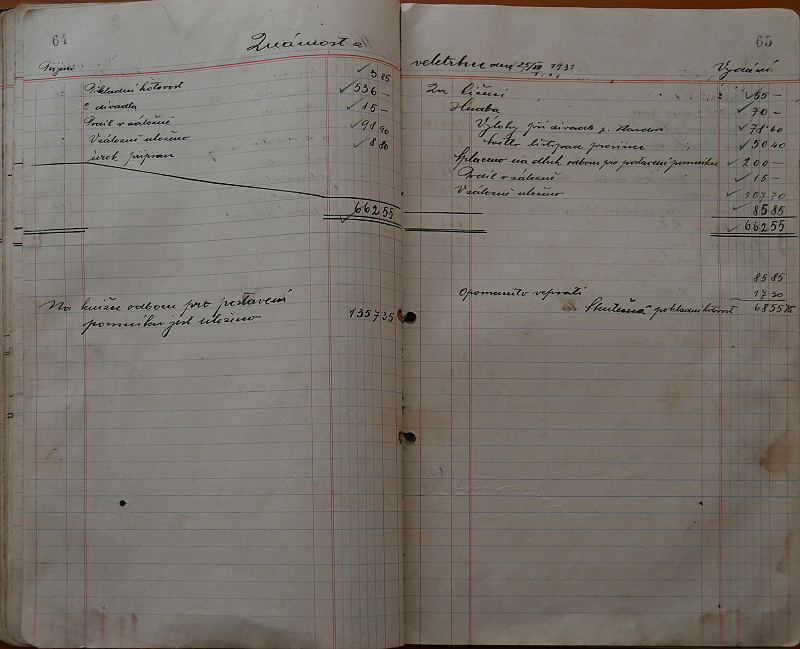 64
Známost a
Příjem
3 85
Pokladní hotovost 536 —
Z divadla 15 —
Podíl v záložně 98 90
V záložně uloženo 8 80
úrok připsán
662 55
Na knížce odboru pro postavení
pomníku jest uloženo 1357 35
65
veletrhu dne 25/XII 1931
Vydání
Za líčení 55 —
Hudba 70 —
Výlohy při divadle p. 78 60
Světlo listopad prosinec 50 40
Splaceno na dluh odboru pro postavení pomníku 200 —
Podíl v záložně 15 —
V záložně uloženo 107 70
85 85
662 55
85 85
Opomenuto vepsati 17 30
Skutečná pokladní hotovost 68 55